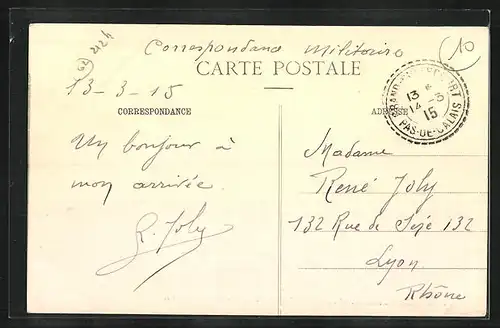 Correspondance Militaire
CARTE POSTALE
13-3-15
CORRESPONDANCE
ADRESSE
13
14-3
15
PAS-DE-CALAIS
Un bonjour à
mon arrivée
R. Joly
Madame
René Joly
132 Rue de Sèze 132
Lyon
Rhône